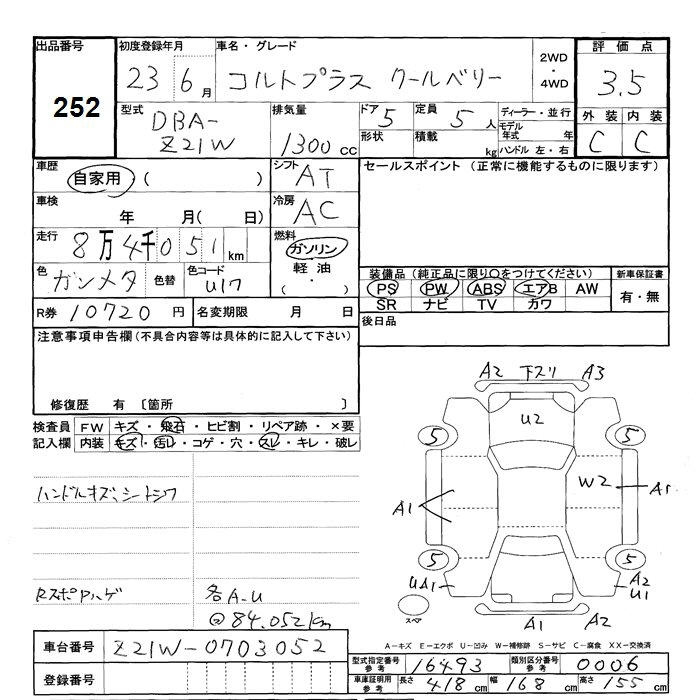 出品番号
252
初度登録年月
23 6月
車名・グレード
コルトプラス クールベリー
2WD・4WD
評価点
3.5
外装 内装
C C
型式
DBA-
Z21W
排気量
1300cc
ドア 5
定員 5人
形状
積載 kg
ディーラー・並行
モデル年式 年
ハンドル 左・右
車歴
自家用 ( )
シフト
AT
車検
年 月( 日)
冷房
AC
走行
8万4千051km
燃料
ガソリン
軽油
( ・ )
色
ガンメタ
色替
色コード
U17
R券 10720円
名変期限 月 日
セールスポイント (正常に機能するものに限ります)
装備品 (純正品に限り○をつけてください)
PS PW ABS エアB AW
SR ナビ TV カワ
新車保証書
有・無
後日品
注意事項申告欄(不具合内容等は具体的に記入して下さい)
修復歴 有 〔箇所 〕
検査員記入欄
FW キズ・飛石・ヒビ割・リペア跡・×要
内装 キズ・汚レ・コゲ・穴・スレ・キレ・破レ
ハンドルキズ、シートシワ
RスポPハゲ
各A-U
@84.052km
A2 下スリ A3
U2
5 5
W2
A1 A1
5 5
UA1
A2
U1
スペア
A1 A2
A-キズ E-エクボ U-凹み W-補修跡 S-サビ C-腐食 XX-交換済
車台番号 Z21W-0703052
登録番号
型式指定番号 参考 16493
類別区分番号 参考 0006
車庫証明用 参考 長さ 418cm 幅 168cm 高さ 155cm